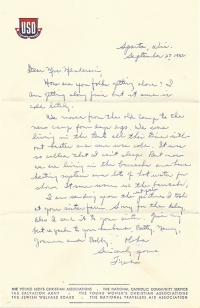 USO
Sparta, Wis.
September 27, 1942
Dear Mrs Henderson,
How are you folks getting along? I
am getting along fine but it sure is
cold lately.
We moved from the old camp to the
new camp four days ago. We were
living in the tents all this time without
heaters and sure was cold. It was
so cold that I can't sleep. But now
we are living in the barracks and
heating system was lots of hot water for
shower. It sure warm in the barracks,
I am sending you the pictures I took
at your sisters farm. Sorry for the delay,
also I sent it to your sister. Give my
best regards to your husband, Betty, Young,
and Bobby. Aloha
Sincerely yours
THE YOUNG MEN'S CHRISTIAN ASSOCIATIONS · THE NATIONAL CATHOLIC COMMUNITY SERVICE
THE SALVATION ARMY · THE YOUNG WOMEN'S CHRISTIAN ASSOCIATIONS
THE JEWISH WELFARE BOARD · THE NATIONAL TRAVELERS AID ASSOCIATION